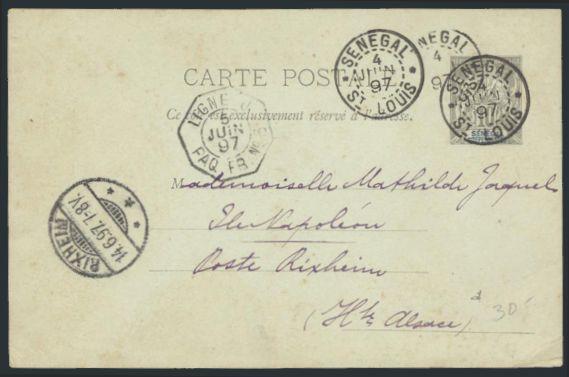 CARTE POSTALE
SENEGAL
4
JUIN
97
ST LOUIS
SENEGAL
4
97
SENEGAL
4
97
ST LOUIS
10
LIGNE
5
JUIN
97
PAQ. FR. No
Ce côté est exclusivement réservé à l'adresse.
Mademoiselle Mathilde Jaquel
Ile Napoléon
RIXHEIM
14.6.97. 7-8V.
Poste Rixheim
(Hte Alsace)
30